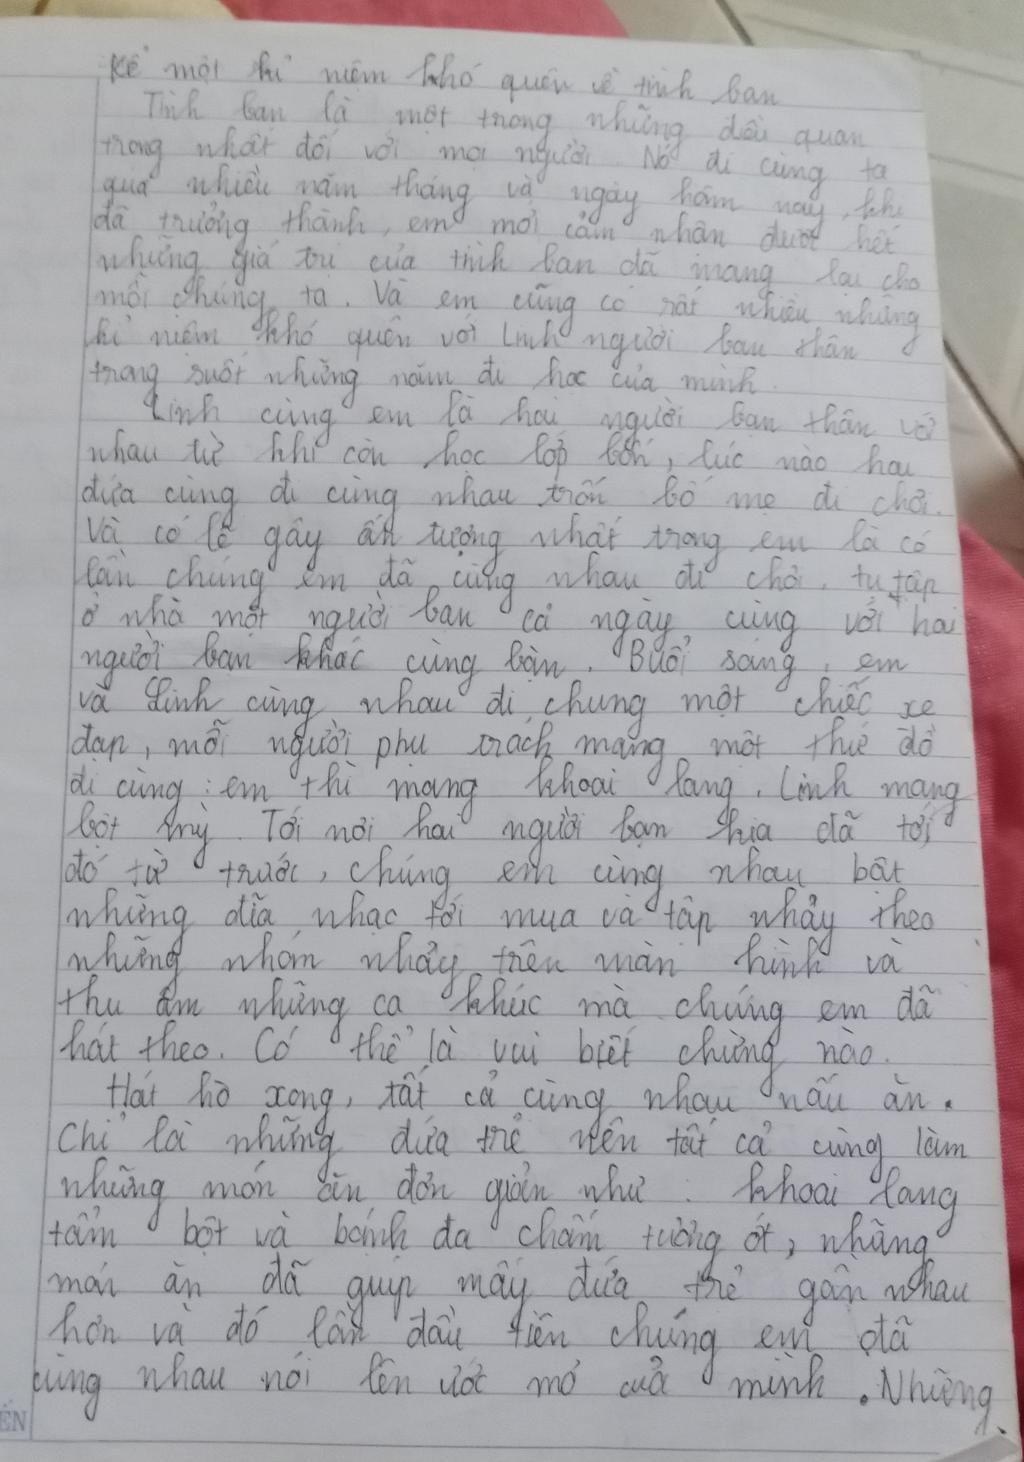 Kể một kỉ niệm khó quên về tình bạn
Tình bạn là một trong những điều quan
trọng nhất đối với mọi người. Nó đi cùng ta
qua nhiều năm tháng và ngày hôm nay, khi
đã trưởng thành, em mới cảm nhận được hết
những giá trị của tình bạn đã mang lại cho
mỗi chúng ta. Và em cũng có rất nhiều những
kỉ niệm khó quên với Linh người bạn thân
trong suốt những năm đi học của mình.
Linh cùng em là hai người bạn thân với
nhau từ khi còn học lớp bốn, lúc nào hai
đứa cũng đi cùng nhau trốn bố mẹ đi chơi.
Và có lẽ gây ấn tượng nhất trong em là có
lần chúng em đã cùng nhau đi chơi, tụ tập
ở nhà một người bạn cả ngày cùng với hai
người bạn khác cùng bàn. Buổi sáng, em
và Linh cùng nhau đi chung một chiếc xe
đạp, mỗi người phụ trách mang một thứ đồ
đi cùng: em thì mang khoai lang, Linh mang
bột mỳ. Tới nơi hai người bạn kia đã tới
đó từ trước, chúng em cùng nhau bật
những đĩa nhạc tới mua và tập nhảy theo
những nhóm nhảy trên màn hình và
thu âm những ca khúc mà chúng em đã
hát theo. Có thể là vui biết chừng nào.
Hát hò xong, tất cả cùng nhau nấu ăn.
Chỉ là những đứa trẻ nên tất cả cùng làm
những món ăn đơn giản như: khoai lang
tẩm bột và bánh đa chấm tương ớt, nhăng
món ăn đã giúp mấy đứa trẻ gần nhau
hơn và đó lần đầu tiên chúng em đã
cùng nhau nói lên ước mơ của mình. Những
ẾN